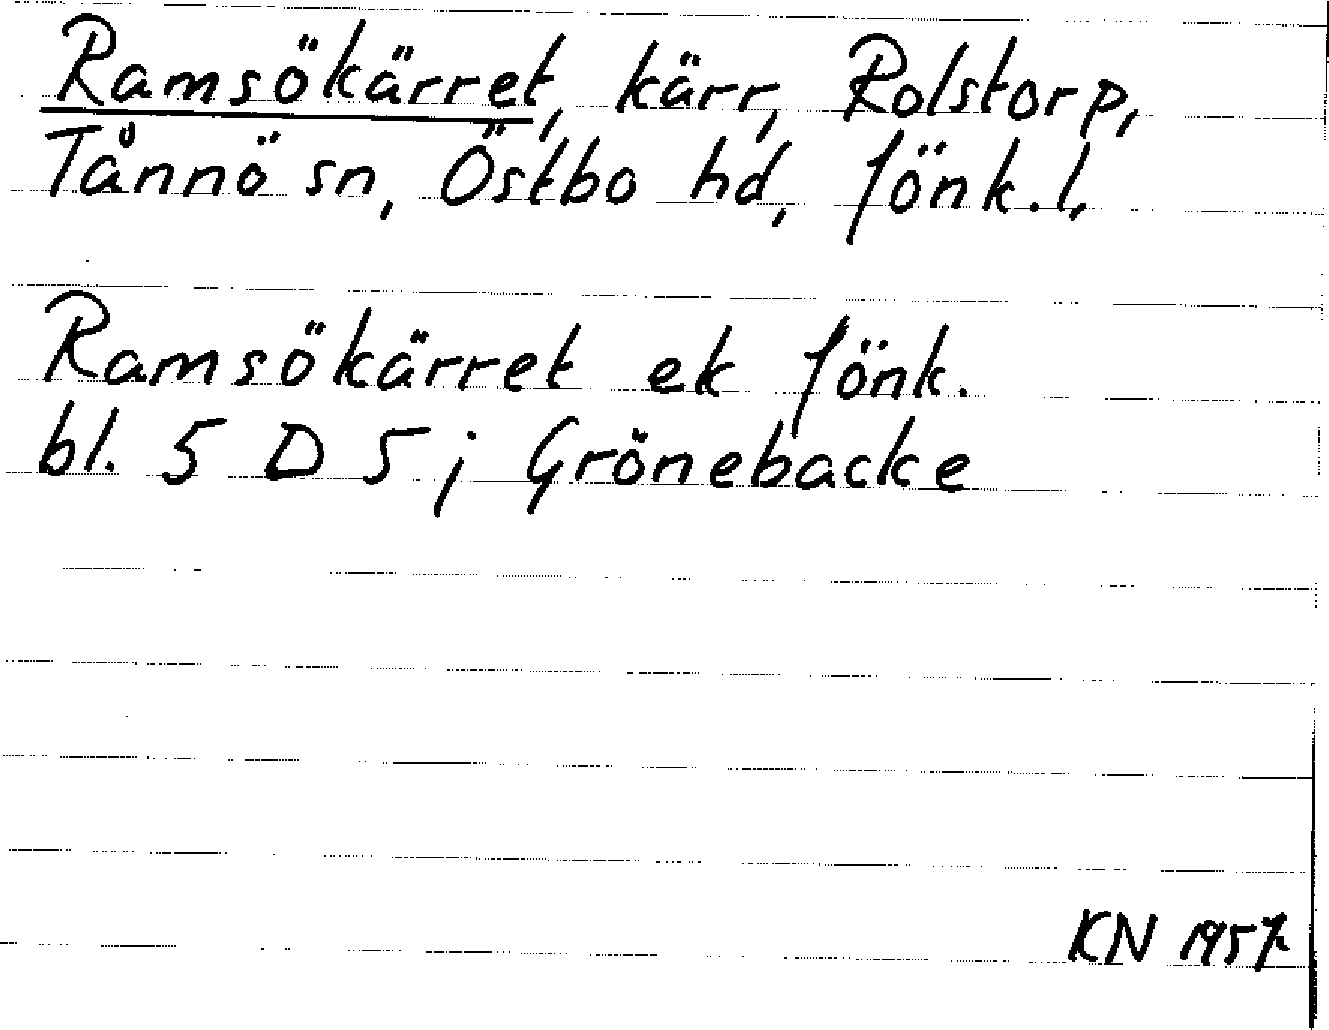 Ramsökärret, kärr, Rolstorp,
Tånnö sn, Östbo hd, Jönk. l.
Ramsökärret ek Jönk.
bl. 5 D 5 j Grönebacke
KN 1957